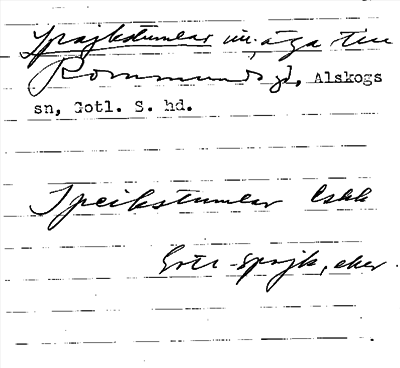 Spajkstumlar in. äga till
Rommunds gd, Alskogs
sn, Gotl. S. hd.
Speikstumlar Eskk
Gotl. spajk, eker.